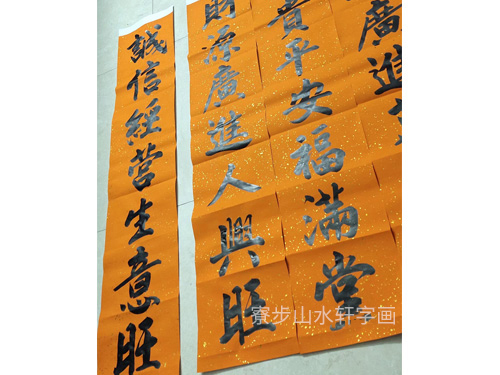 誠信經营生意旺
財源廣進人興旺
貴平安福滿堂
廣進
寮步山水轩字画